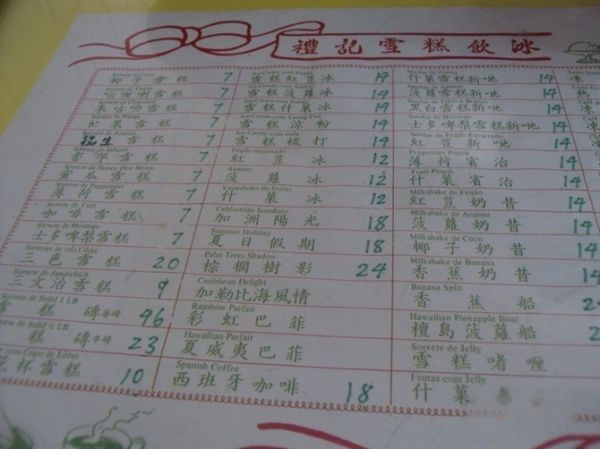 禮記雪糕飲冰
Sorvete de Coco
椰子雪糕 7
雪糕 7
雪糕 7
Sorvete de Manga
芒果雪糕 7
花生雪糕 7
香芋雪糕 7
Sorvete de Honey Dew Melon
蜜瓜雪糕 7
Sorvete de Peppermint
薄荷雪糕 7
Sorvete de Café
咖啡雪糕 7
Sorvete de Morango
士多啤梨雪糕 7
三色雪糕 20
Sorvete de Sandwhich
三文治雪糕 9
Sorvete de Solid 1 LB
雪糕磚 46
Sorvete de Solid ½ LB
糕磚 23
com Copo de Lótus
花杯雪糕 10
雪糕紅荳冰 14
雪糕菠蘿冰 14
雪糕什菓冰 14
雪糕涼粉 14
Ice-Cream com soda
雪糕梳打 14
Feijão encarnado
紅荳冰 12
Ananaz
菠蘿冰 12
Variedades de frutas
什菓冰 12
Californian Sunshine
加洲陽光 18
Summer Holiday
夏日假期 18
Palm Trees Shadow
棕櫚樹影 24
Caribbean Delight
加勒比海風情
Rainbow Parfait
彩虹巴菲
Hawaiian Parfait
夏威夷巴菲
Spanish Coffee
西班牙咖啡 18
什菓雪糕新地 14
菠蘿雪糕新地 14
黑白雪糕新地 14
Sundae de Morango
士多啤梨雪糕新地 14
Sundae de Feijão Encarnado
紅荳新地 14
Peppermint Punch
薄荷賓治 14
Fruit Punch
什菓賓治 14
Milkshake de Feijão
紅荳奶昔 14
Milkshake de Ananaz
菠蘿奶昔 14
Milkshake de Coco
椰子奶昔 14
Milkshake de Banana
香蕉奶昔 14
Banana Split
香蕉船
Hawaiian Pineapple Boat
檀島菠蘿船
Sorvete de Jelly
雪糕啫喱
Frutas com Jelly
什菓